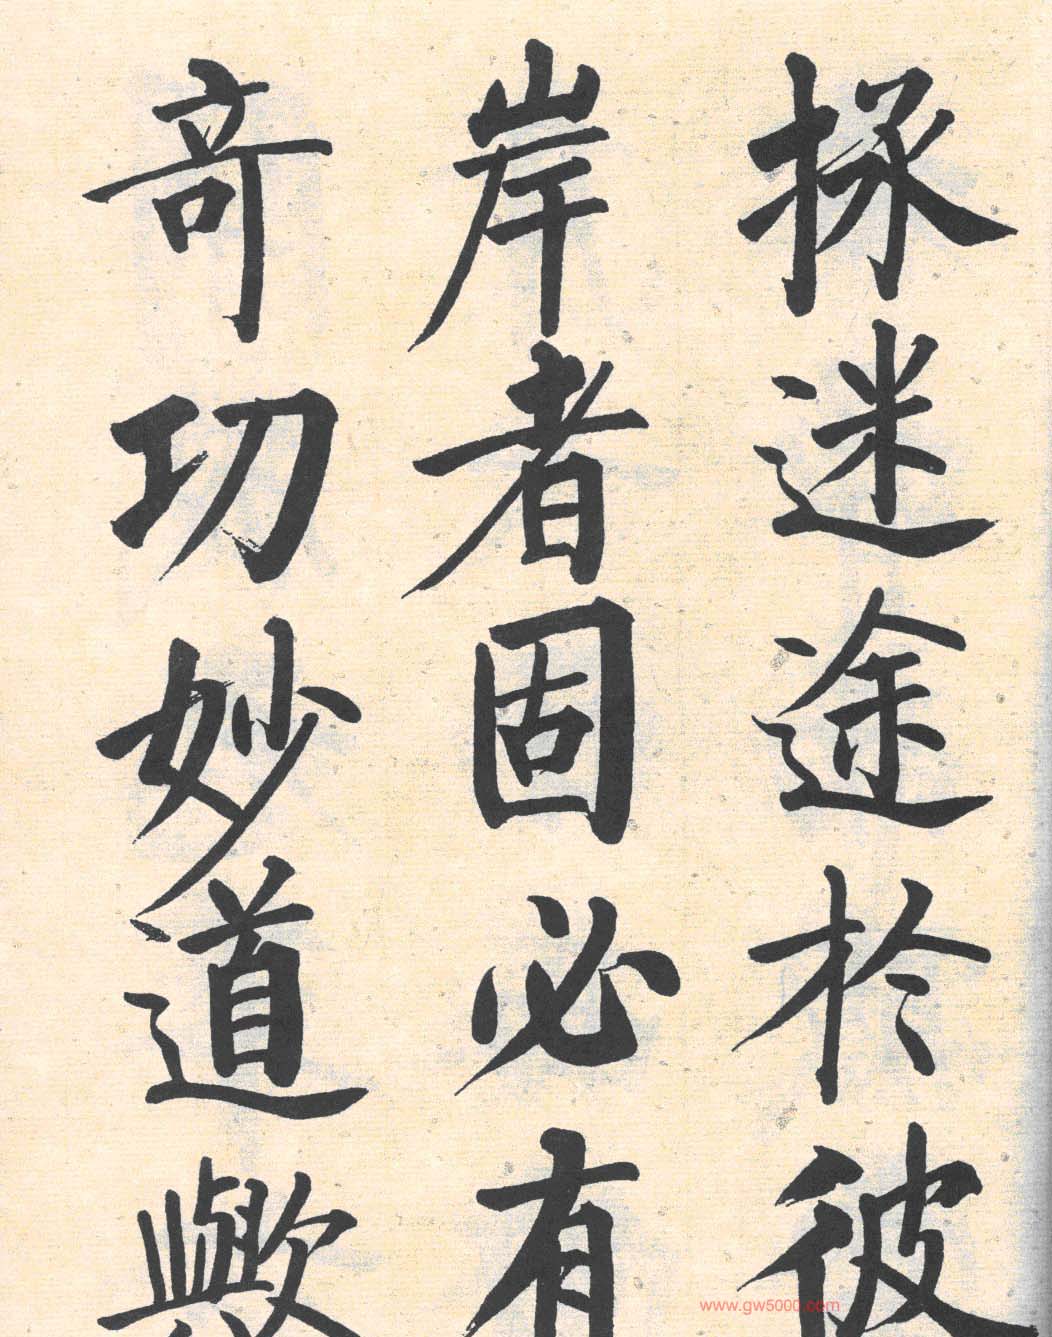 拯迷途於彼
岸者固必有
奇功妙道歟
www.gw5000.com